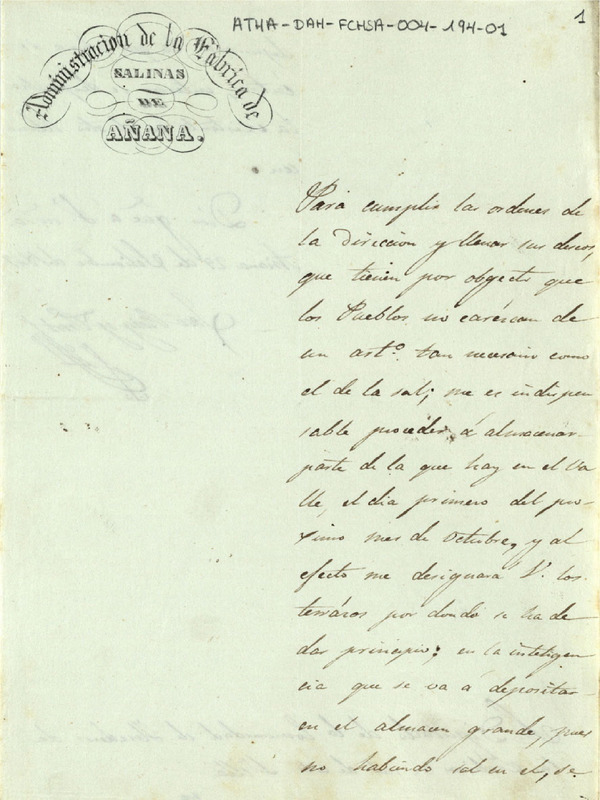 ATHA-DAH-FCHSA-004-194-01
1
Administracion de la Fábrica de
SALINAS
DE
AÑANA.
Para cumplir las ordenes de
la Direccion y llenar sus deseos,
que tienen por objecto que
los Pueblos no carescan de
un artº. tan necesario como
el de la sal; me es indispen
sable proceder á almacenar
parte de la que hay en el Va
lle, el dia primero del pro-
ximo mes de Octubre, y al
efecto me designara V. los
terrázos por donde se ha de
dar principio; en la inteligen
cia que se va á depositar
en el almacen grande, pues
no habiendo sal en el, se